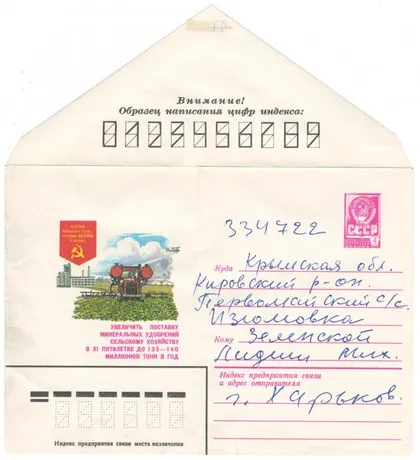 Внимание!
Образец написания цифр индекса:
0123456789
СССР
ПОЧТА
4
к
334722
Куда Крымская обл.
Кировский р-он.
Первомайский с/с.
Изюмовка
Кому Земской
Лидии Мих.
УВЕЛИЧИТЬ ПОСТАВКУ
МИНЕРАЛЬНЫХ УДОБРЕНИЙ
СЕЛЬСКОМУ ХОЗЯЙСТВУ
В XI ПЯТИЛЕТКЕ ДО 135—140
МИЛЛИОНОВ ТОНН В ГОД
Индекс предприятия связи
и адрес отправителя
г. Харьков.
Индекс предприятия связи места назначения